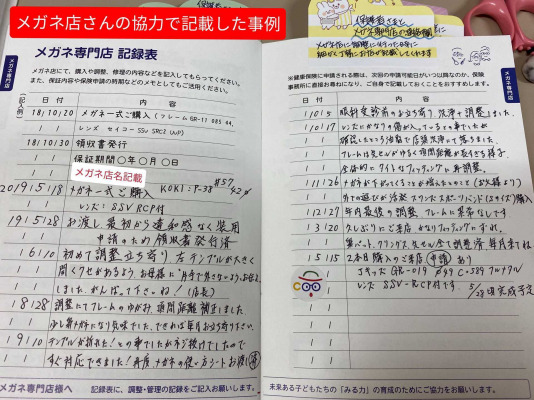 メガネ店さんの協力で記載した事例
保護者さまと
メガネ専門店の連絡欄
メガネ店に調整に行った時に
細かく丁寧にお店が記載してくれます
メガネ専門店 記録表
メガネ店にて、購入や調整、修理の内容などを記入してもらってください。
また、保証内容や保険申請の時期などのメモとしてもご活用ください。
記入例
日 付 内 容
18/10/20 メガネ一式ご購入(フレーム GR-11 085 04,
レンズ セイコー SSV SRC2 UVP)
18/10/30 領収書発行
保証期間○年○月○日
メガネ店名記載
2019/5/18 メガネ一式ご購入 KOKI:P-38 #57 42
レンズ:SSV RCP付
19/5/28 お渡し 最初から違和感なく装用
申請のため領収書発行済
6/10 初めて調整立ち寄り 左テンプルが大きく
開くクセがあるよう お母様に"片手で外さないよう"お伝え
しました。がんばって下さいね!(店長)
8/28 調整にてフレームのゆがみ、頂間距離補正しました
できれば毎月お立ち寄り下さい。
9/10 テンプルが折れた!との事でしたがネジ抜けでしたので
すぐ対応できました!再度メガネの使い方シートお渡し済
メガネ専門店様へ 記録表に、調整・管理の記録をご記入お願いします。
メガネ専門店
※健康保険に申請される際は、次回の申請可能日がいつ以降なのか、保険
事務所に直接お尋ねになり、ご自身で記載しておくことをおすすめします。
日 付 内 容
10/5 眼科受診前のお立ち寄り 洗浄+調整しました。
10/17 レンズにかなりの傷が入っているとの事でしたが
確認したところ油汚れで店頭洗浄にて落ちました。
フレームは先セルがゆるく頂間距離が長すぎる様子。
全体的にタイトなフィッティングに再調整。
11/26 メガネが下がってくることが増えたとのこと(お父様より)
外での遊びが活発 スワンズスポーツバンド(Sサイズ)購入
12/27 年内最後の調整 フレームに異常なしです
3/20 久しぶりにご来店 かなりフィッティングにずれ、
鼻パット、クリングス、先セル全て調整済、毎月来てね
5/15 2本目購入のご来店 申請あり
Jキッズ GR-019 P44 C-589 フルメタル
レンズ SSV-RCP付です 5/28頃完成予定
未来ある子どもたちの「みる力」の育成のためにご協力をお願いします。
メガネ専門店